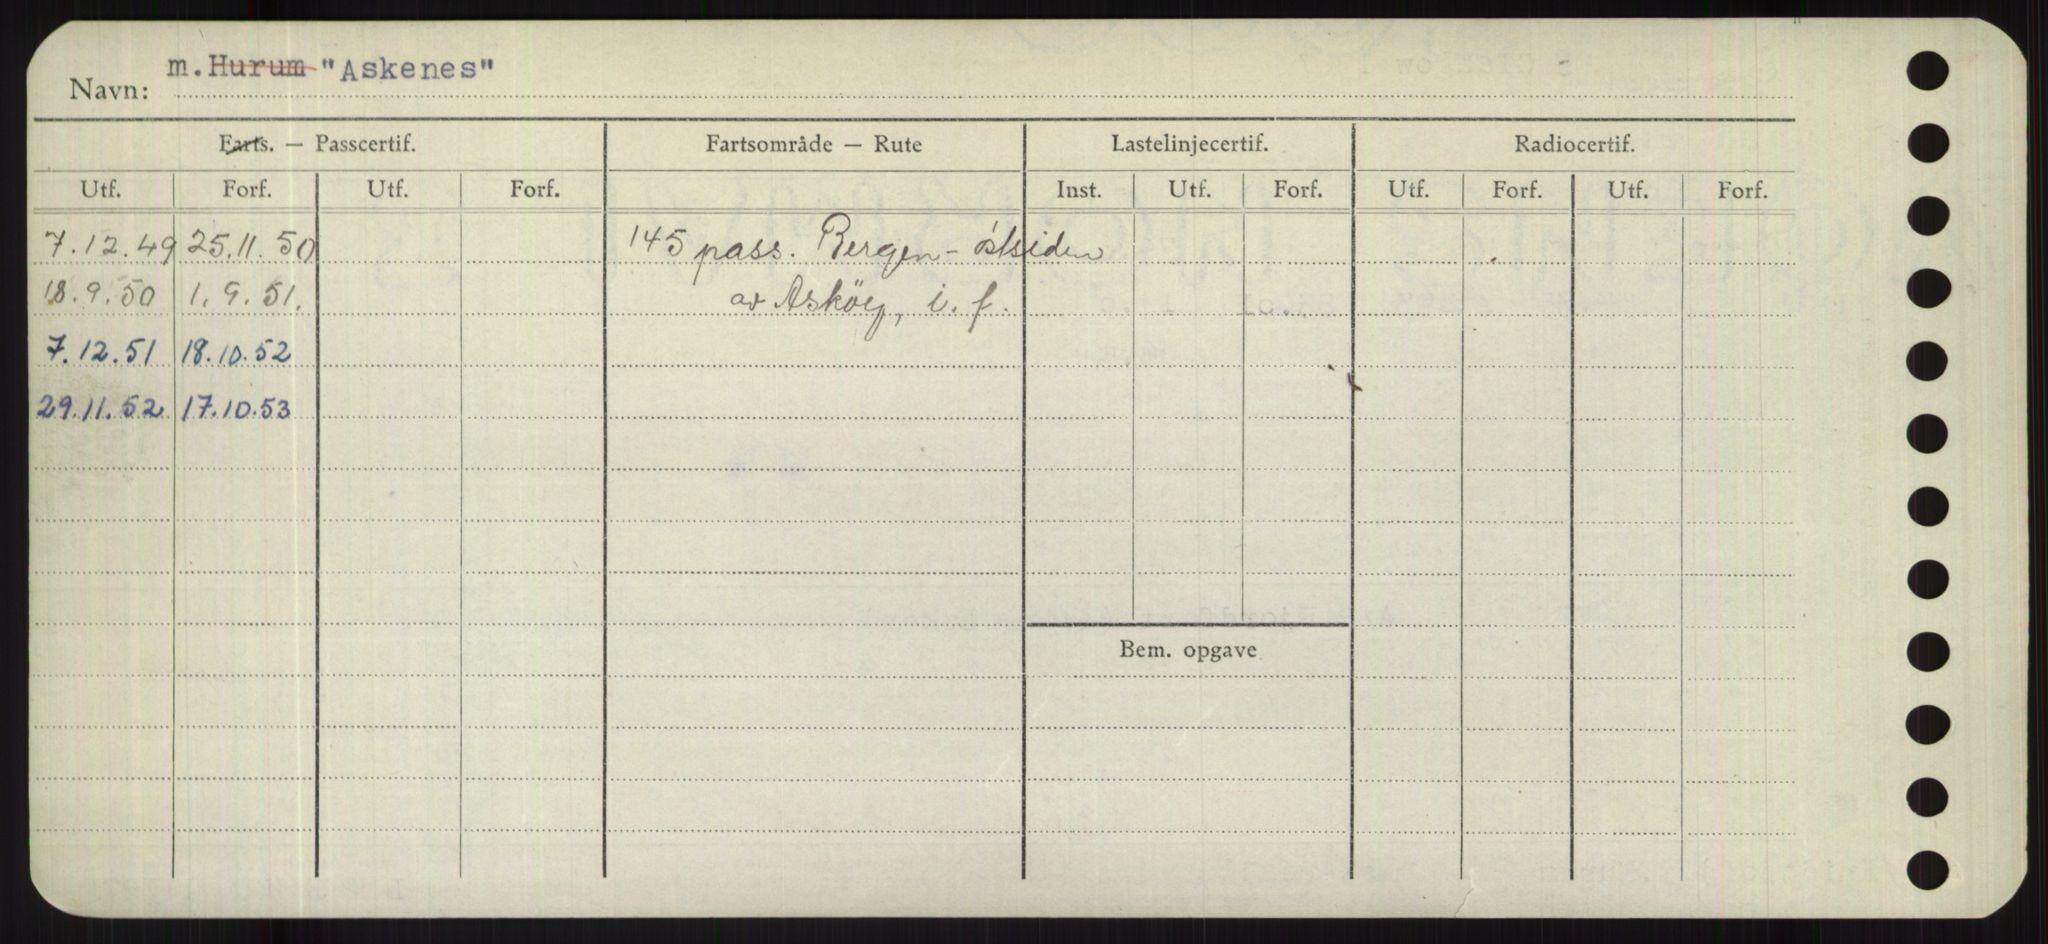 Navn: m. Hurum "Askenes"
Farts. — Passcertif. Fartsområde — Rute Lastelinjecertif. Radiocertif.
Utf. Forf. Utf. Forf. Inst. Utf. Forf. Utf. Forf. Utf. Forf.
7.12.49 25.11.50 145 pass. Bergen - östsiden
18.9.50 1.9.51. av Asköy, i. f.
7.12.51 18.10.52
29.11.52 17.10.53
Bem. opgave